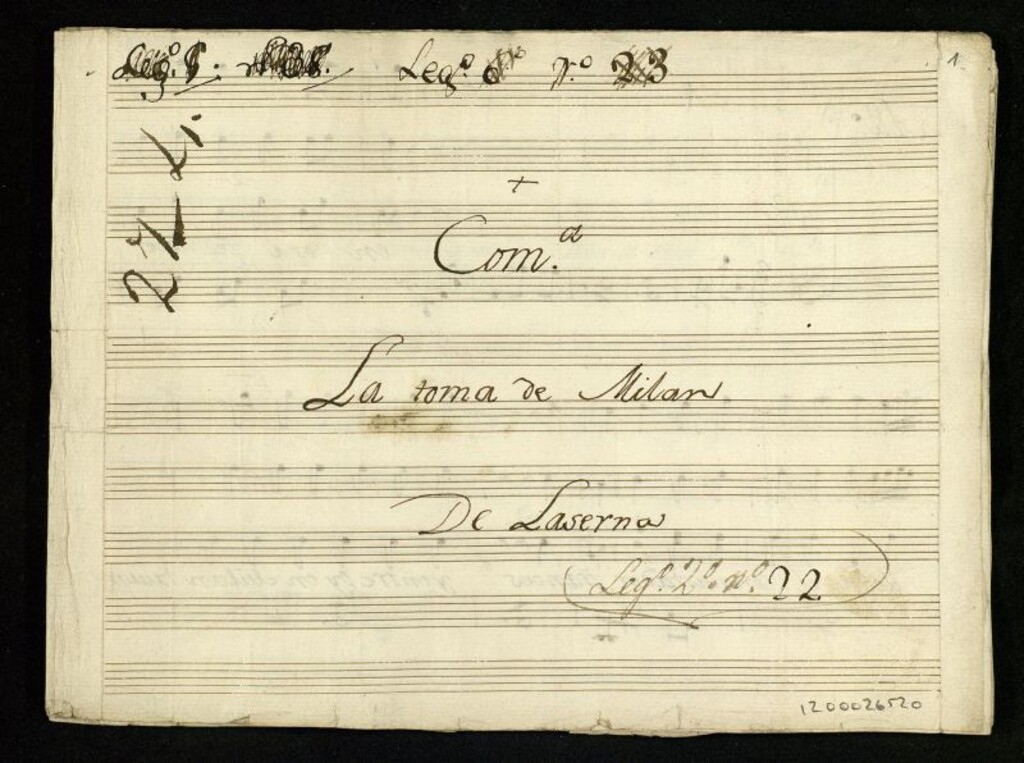 Leg.º Leg.º n.º 23
1
+
Com.ª
La toma de Milan
De Laserna
Leg.º 2.º n.º 22
1200026520